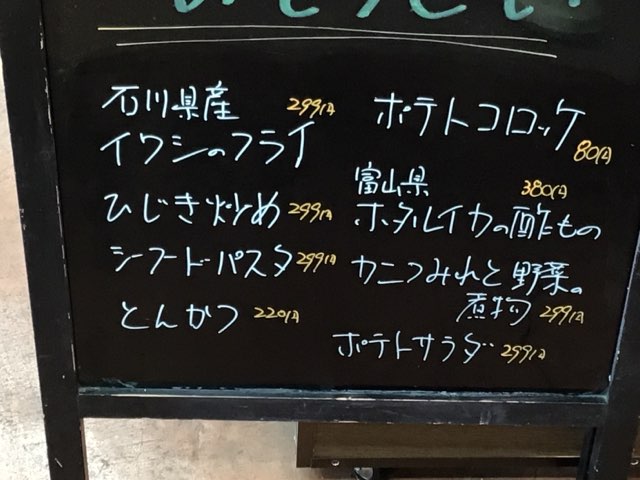 石川県産 299円
イワシのフライ
ひじき炒め 299円
シーフードパスタ 299円
とんかつ 220円
ポテトコロッケ
80円
富山県 380円
ホタルイカの酢もの
カニつみれと野菜の
煮物 299円
ポテトサラダ 299円